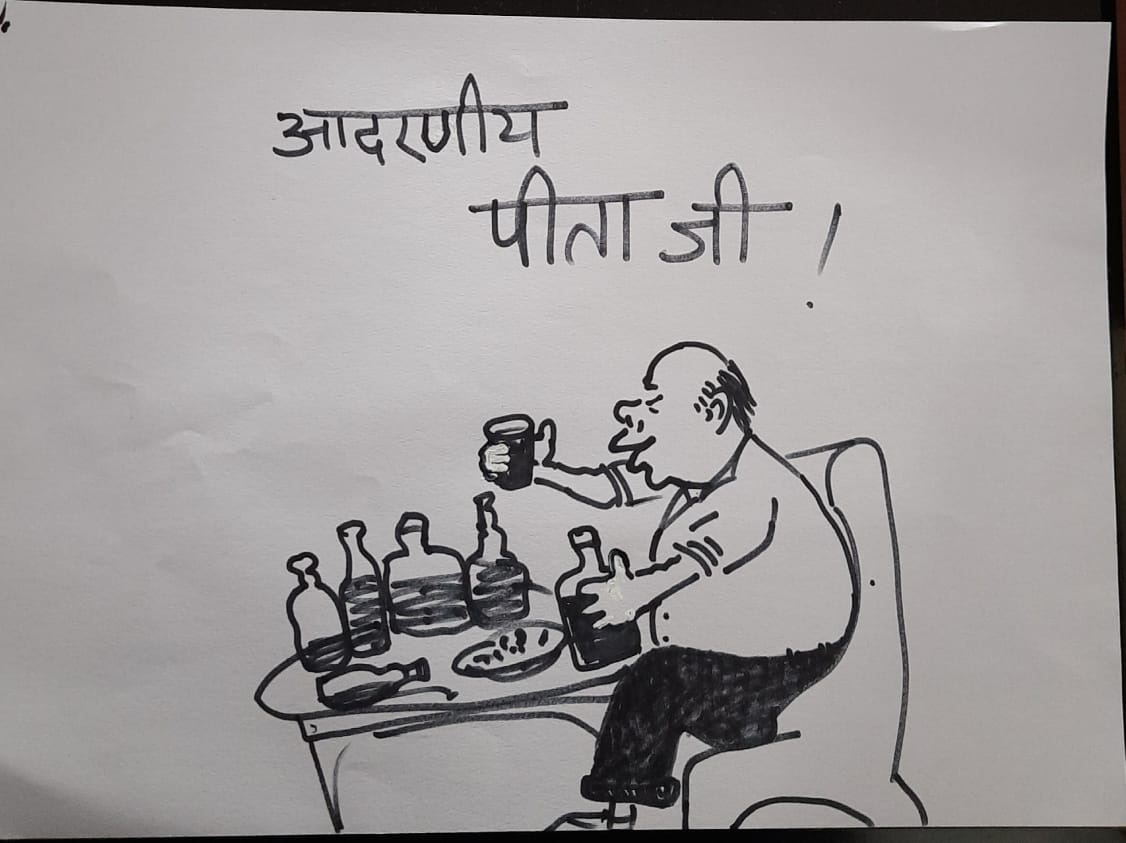 आदरणीय
पीता जी !